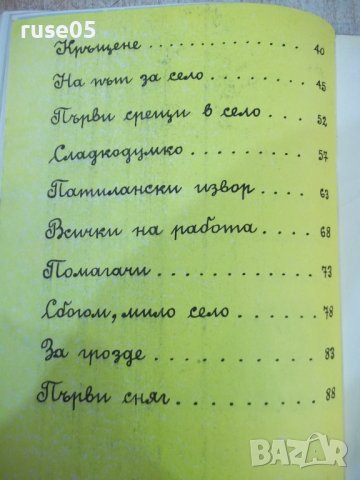 ruse05
Кръщене . . . . . . . . . . . . . 40
На път за село . . . . . . . . . 45
Първи срещи в село . . . . . . 52
Сладкодумко . . . . . . . . . . 57
Патилански извор . . . . . . . 63
Всички на работа . . . . . . . 68
Помагачи . . . . . . . . . . . . 73
Сбогом, мило село . . . . . . . 78
За грозде . . . . . . . . . . . . 83
Първи сняг . . . . . . . . . . . 88
BAZAR